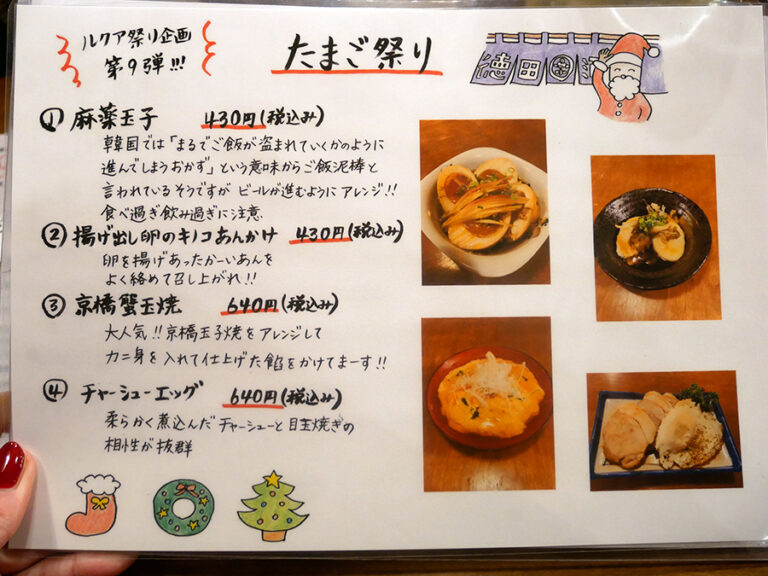 ルクア祭り企画
第9弾!!!
たまご祭り
徳田
① 麻薬玉子 430円(税込み)
韓国では「まるでご飯が盗まれていくかのように
進んでしまうおかず」という意味からご飯泥棒と
言われているそうですが ビールが進むように アレンジ!!
食べ過ぎ飲み過ぎに注意
② 揚げ出し卵のキノコあんかけ 430円(税込み)
卵を揚げあったかーいあんを
よく絡めて召し上がれ!!
③ 京橋蟹玉焼 640円(税込み)
大人気!!京橋玉子焼をアレンジして
カニ身を入れて仕上げた餡をかけてまーす!!
④ チャーシューエッグ 640円(税込み)
柔らかく煮込んだチャーシューと目玉焼きの
相性が抜群